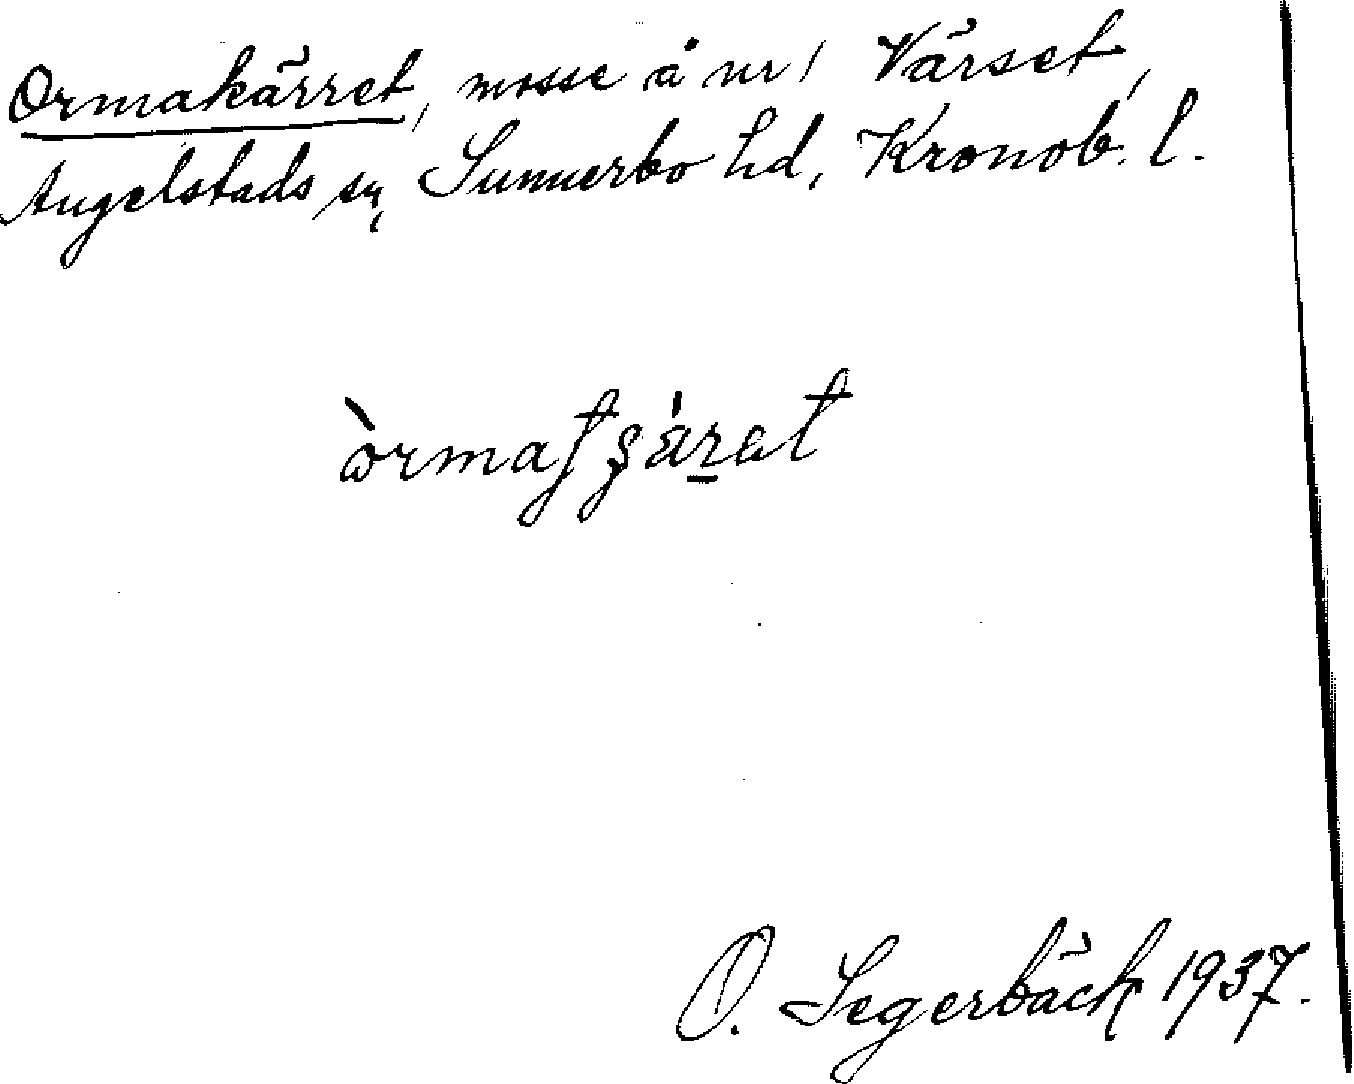 Ormakärret, mosse å nr 1 Värset,
Angelstads sn, Sunnerbo hd, Kronob. l.
O. Segerbäck 1937.